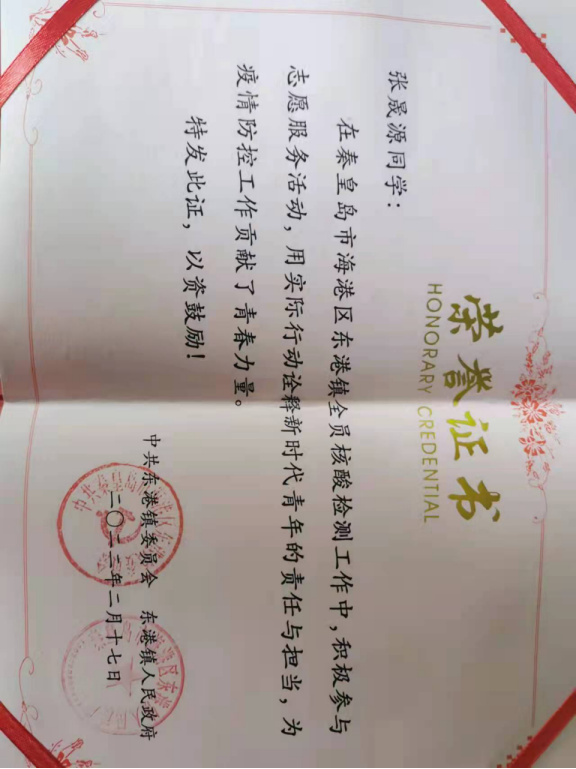 荣誉证书
HONORARY CREDENTIAL
张晟源同学：
在秦皇岛市海港区东港镇全员核酸检测工作中，积极参与
志愿服务活动，用实际行动诠释新时代青年的责任与担当，为
疫情防控工作贡献了青春力量。
特发此证，以资鼓励！
中共东港镇委员会 东港镇人民政府
二〇二二年二月十七日